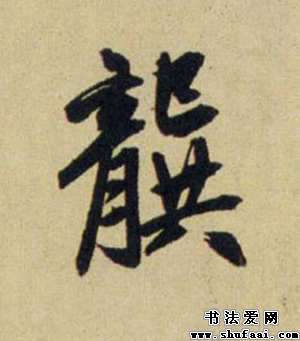 龔
书法爱网
www.shufaai.com